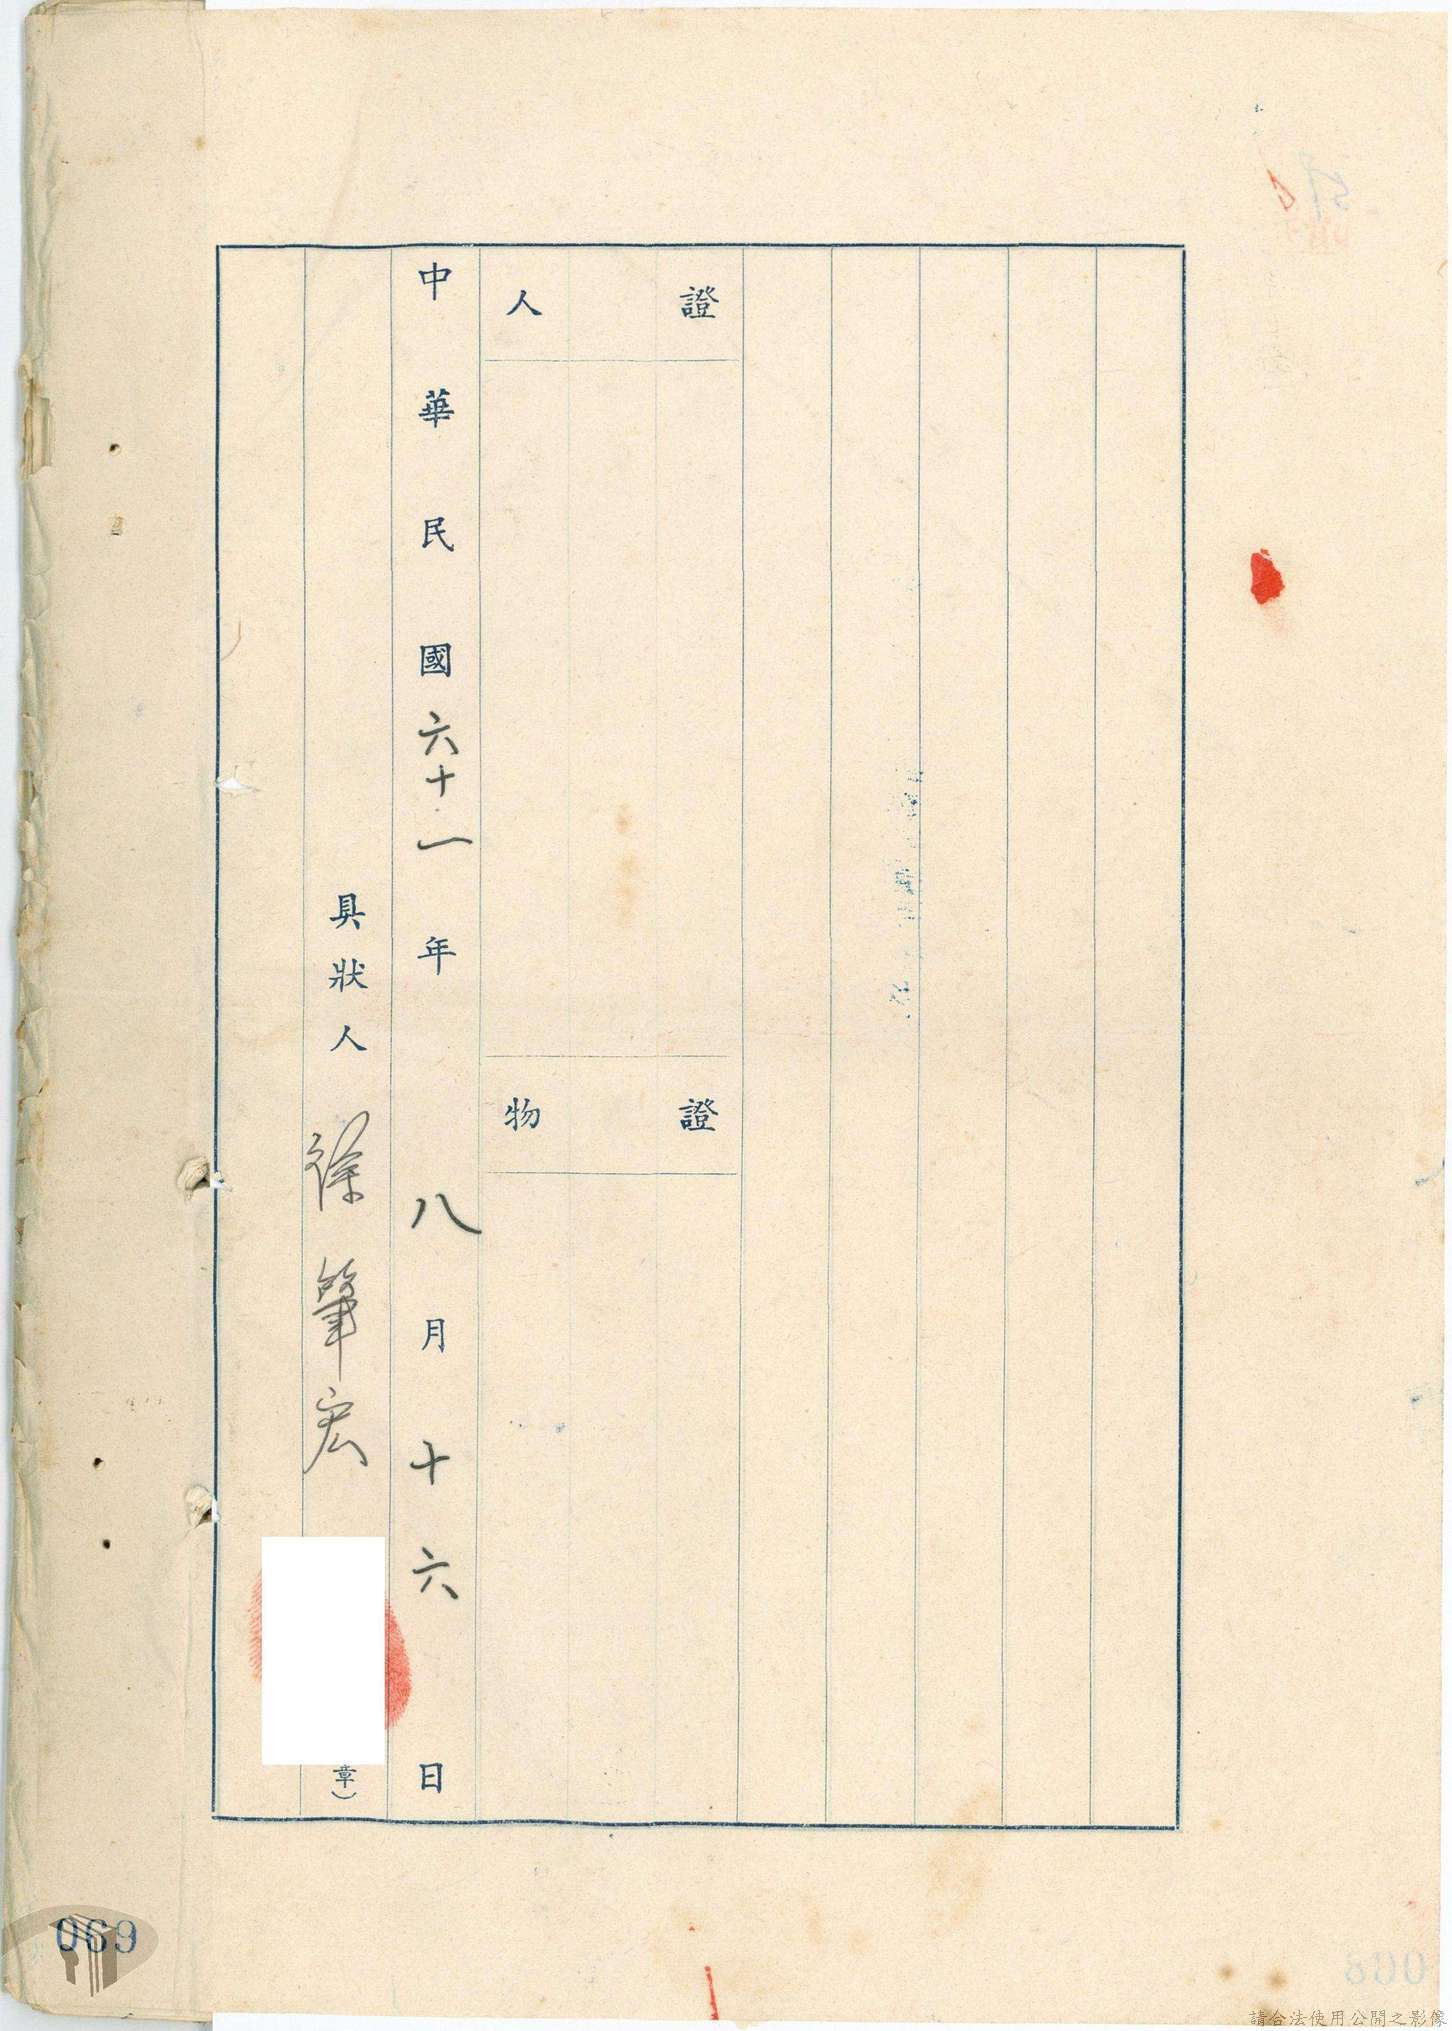 證人
證物
中華民國六十一年八月十六日
具狀人 徐肇宏
章）
069
請合法使用公開之影像